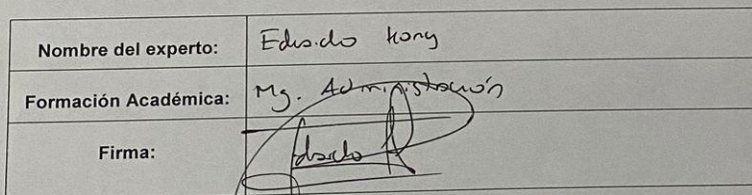 Nombre del experto: Eduardo
Formación Académica: Mg. Administración
Firma: